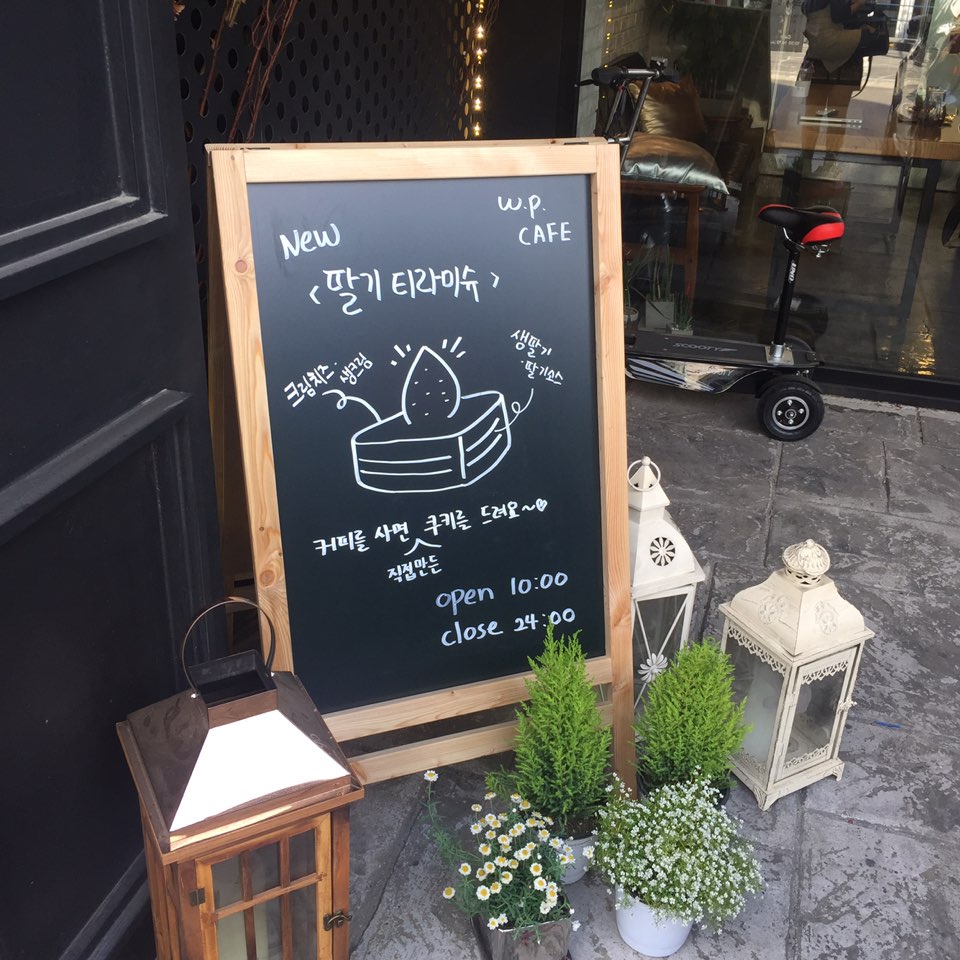 New
w.p.
CAFE
< 딸기 티라미슈 >
크림치즈·
생크림
생딸기
·딸기소스
커피를 사면 쿠키를 드려요~♡
직접만든
open 10:00
close 24:00
SCOOTY